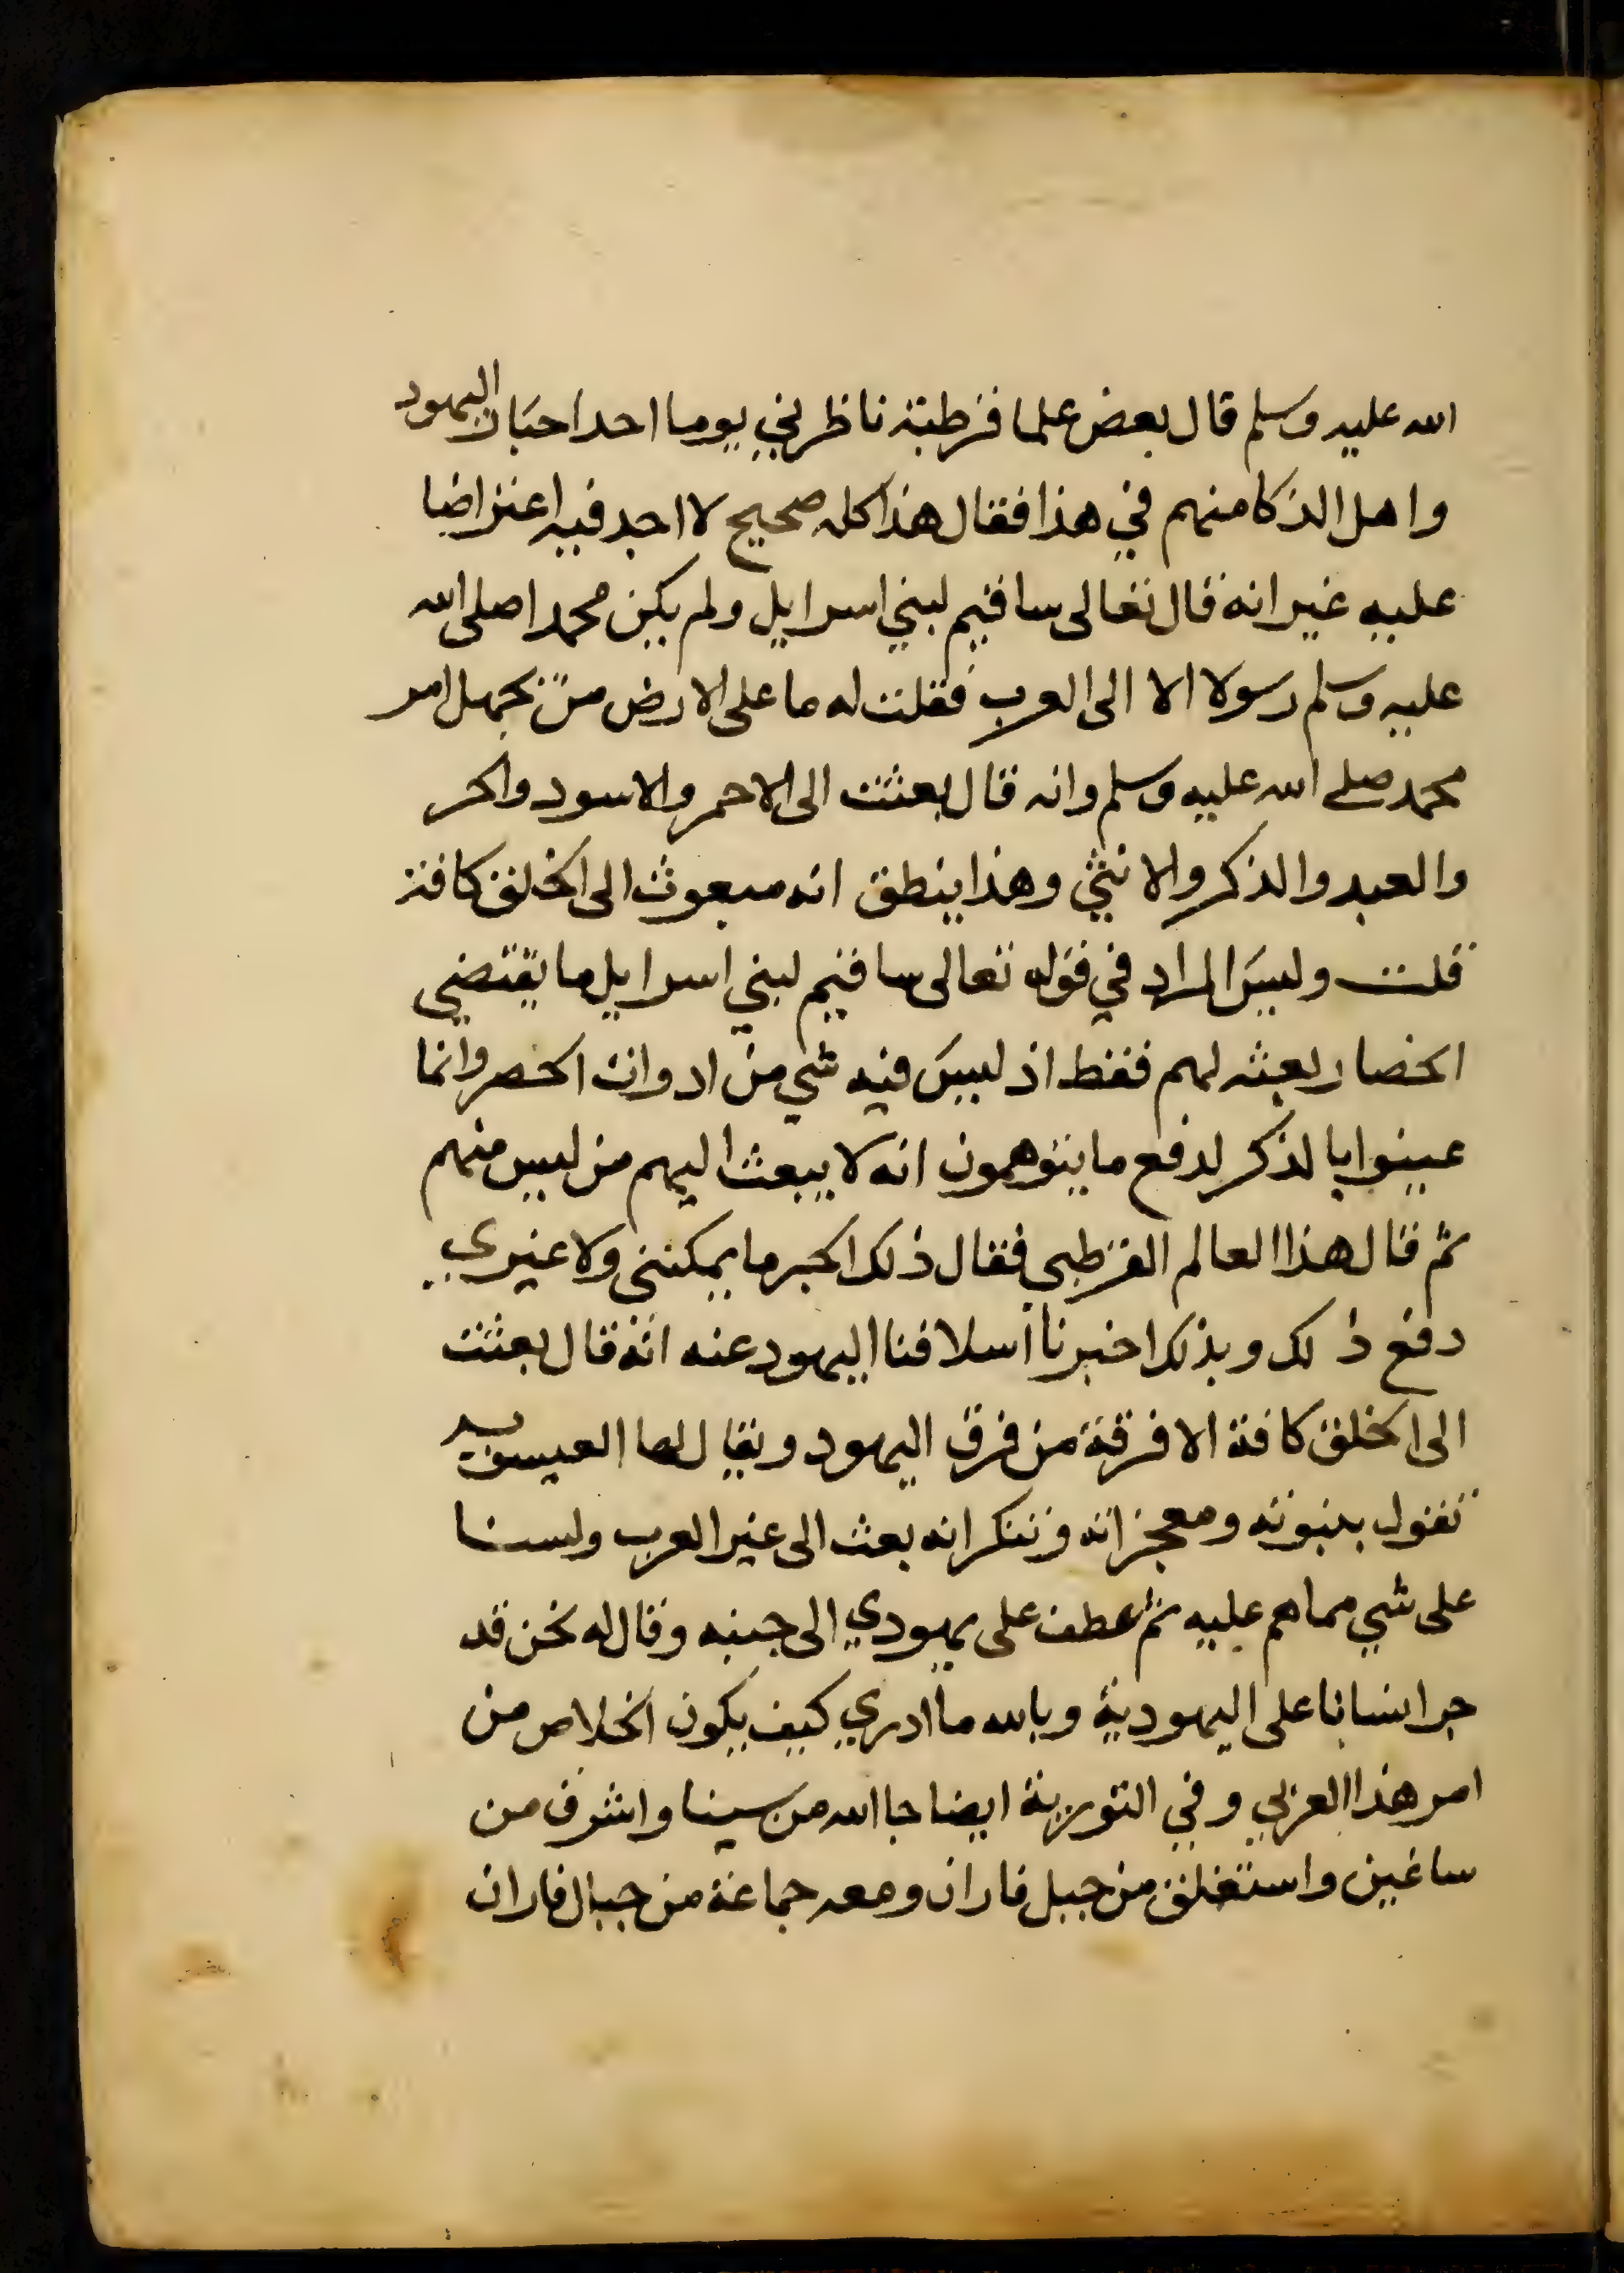 الله عليه وسلم قال بعض علما قرطبة ناظرني يوما احد احبار اليهود
واهل الذكا منهم في هذا فقال هذا كله صحيح لا اجد فيه اعتراضا
عليه غير انه قال تعالى ساقيم لبني اسرايل ولم يكن محمد اصلى الله
عليه وسلم رسولا الا الى العرب فقلت له ما على الارض من يجهل امر
محمد صلى الله عليه وسلم وانه قال بعثت الى الاحمر والاسود والحر
والعبد والذكر والانثى وهذا ينطق انه مبعوث الى الخلق كافة
قلت وليس المراد في قوله تعالى ساقيم لبني اسرايل ما يقتضي
انحصار بعثه لهم فقط اذ ليس فيه شي من ادوات الحصر وانما
عينوا بالذكر لدفع ما يتوهمون انه لا يبعث اليهم من ليس منهم
ثم قال هذا العالم القرطبي فقال ذلك الحبر ما يمكنني ولا غيري
دفع ذلك وبذلك اخبرنا اسلافنا اليهود عنه انه قال بعثت
الى الخلق كافة الا فرقة من فرق اليهود ويقال لها العيسوية
تقول بنبوته ومعجزاته وتنكر انه بعث الى غير العرب ولسنا
على شي مما هم عليه ثم عطف على يهودي الى جنبه وقال له نحن قد
جرانسانا على اليهودية وبالله ما ادري كيف يكون الخلاص من
امر هذا العربي وفي التورية ايضا جا الله من سينا واشرق من
ساعين واستعلن من جبل فاران ومعه جماعة من جبال فاران